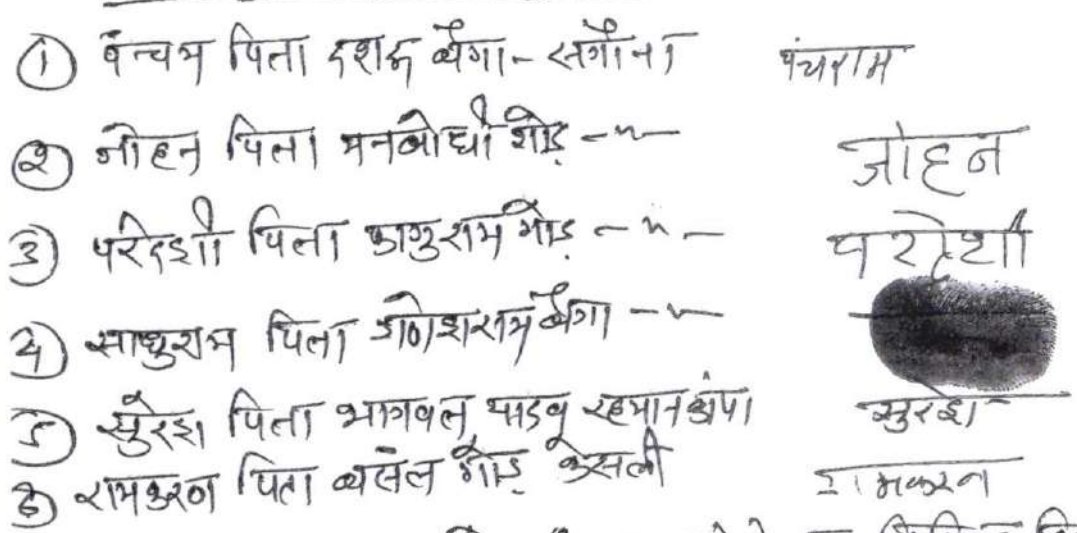 ① पंचम पिता दशरु बैगा - सगौना पंचराम
② जोहन पिता मनबोधी गोंड़ -〃- जोहन
③ परदेशी पिता फागुराम गोंड़ -〃- परदेशी
④ साधुराम पिता गणेशराम बैगा -〃-
⑤ सुरेश पिता भागवत यादव सुरेश
⑥ रामकरण पिता गोंड़ केसली रामकरन